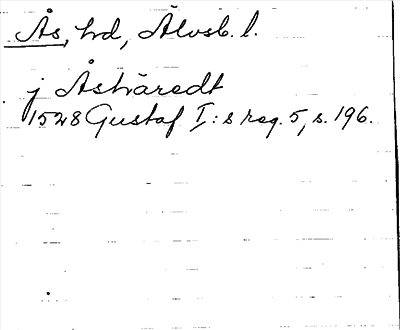 Ås, hd, Älvsb. l.
j Åshäredt
1528 Gustaf I:s reg. 5, s. 196.